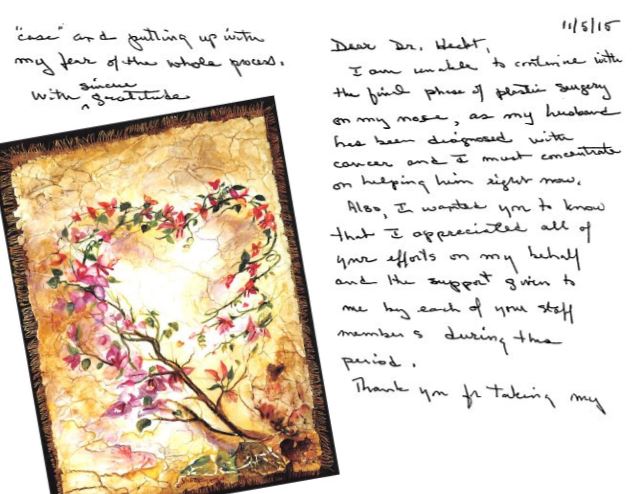 11/5/15
Dear Dr. Hecht,
I am unable to continue with
the final phase of plastic surgery
on my nose, as my husband
has been diagnosed with
cancer and I must concentrate
on helping him right now.
Also, I wanted you to know
that I appreciated all of
your efforts on my behalf
and the support given to
me by each of your staff
members during this
period.
Thank you for taking my
"case" and putting up with
my fear of the whole process.
With sincere gratitude